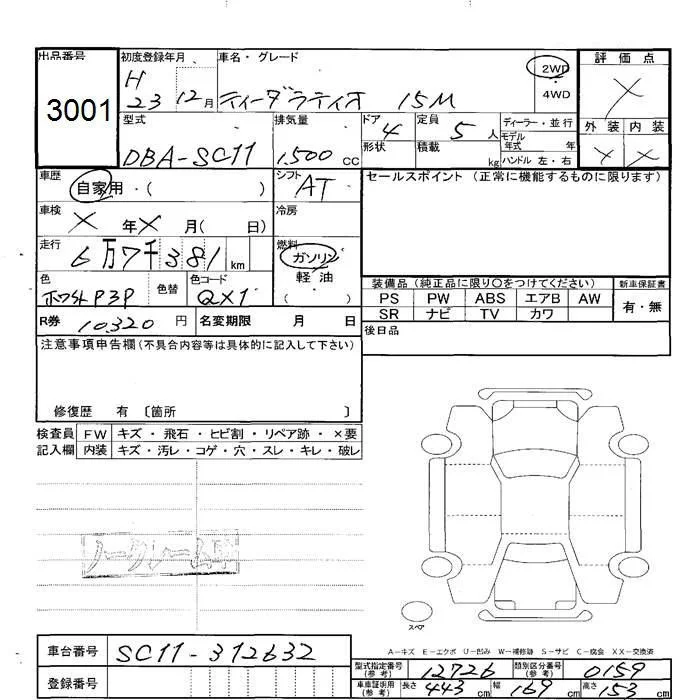 出品番号
3001
初度登録年月
H
23 12月
車名・グレード
ティーダラティオ 15M
2WD
・
4WD
評価点
X
外装 内装
X X
型式
DBA-SC11
排気量
1,500 cc
ドア 4
形状
定員 5 人
積載 kg
ディーラー・並行
モデル
年式 年
ハンドル 左・右
車歴
自家用・( )
シフト
AT
セールスポイント (正常に機能するものに限ります)
車検
X 年 X 月( 日)
冷房
走行
6万7千381 km
燃料
ガソリン
軽油
色
ホワイトP3P
色替
色コード
QX1
装備品(純正品に限り○をつけてください)
新車保証書
PS PW ABS エアB AW
有・無
SR ナビ TV カワ
R券 10,320 円
名変期限 月 日
後日品
注意事項申告欄(不具合内容等は具体的に記入して下さい)
修復歴 有 〔箇所 〕
検査員 FW キズ・飛石・ヒビ割・リペア跡・×要
記入欄 内装 キズ・汚レ・コゲ・穴・スレ・キレ・破レ
ノークレーム車
スペア
A-キズ E-エクボ U-凹み W-補修跡 S-サビ C-腐食 XX-交換済
車台番号 SC11-312632
登録番号
型式指定番号
(参考)
12726
類別区分番号
(参考)
0159
車車証明用
(参考)
長さ 443 cm 幅 169 cm 高さ 153 cm